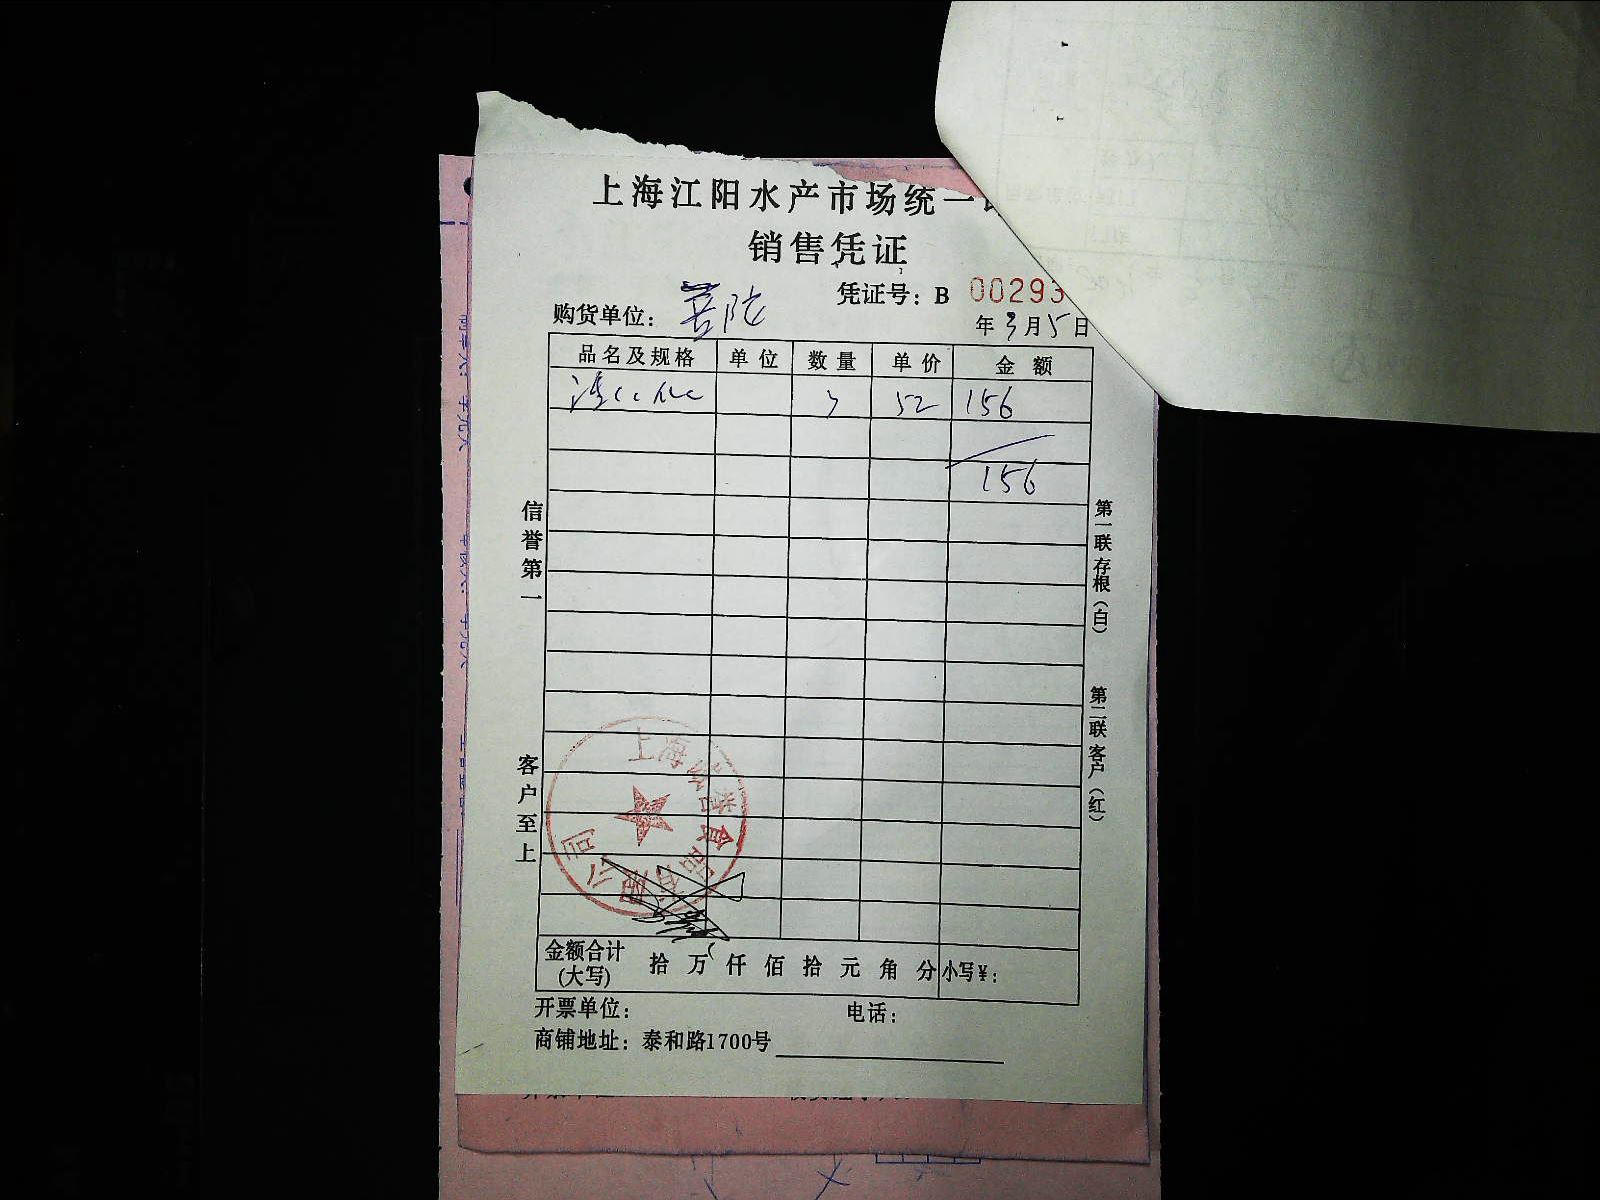 上海江阳水产市场统一
销售凭证
凭证号：B 00293
购货单位：普陀
年3月5日
品名及规格 单位 数量 单价 金额
3 52 156
156
信誉第一
客户至上
第一联存根（白）
第二联客户（红）
上海 食品有限公司
金额合计（大写） 拾 万 仟 佰 拾 元 角 分 小写¥：
开票单位： 电话：
商铺地址：泰和路1700号